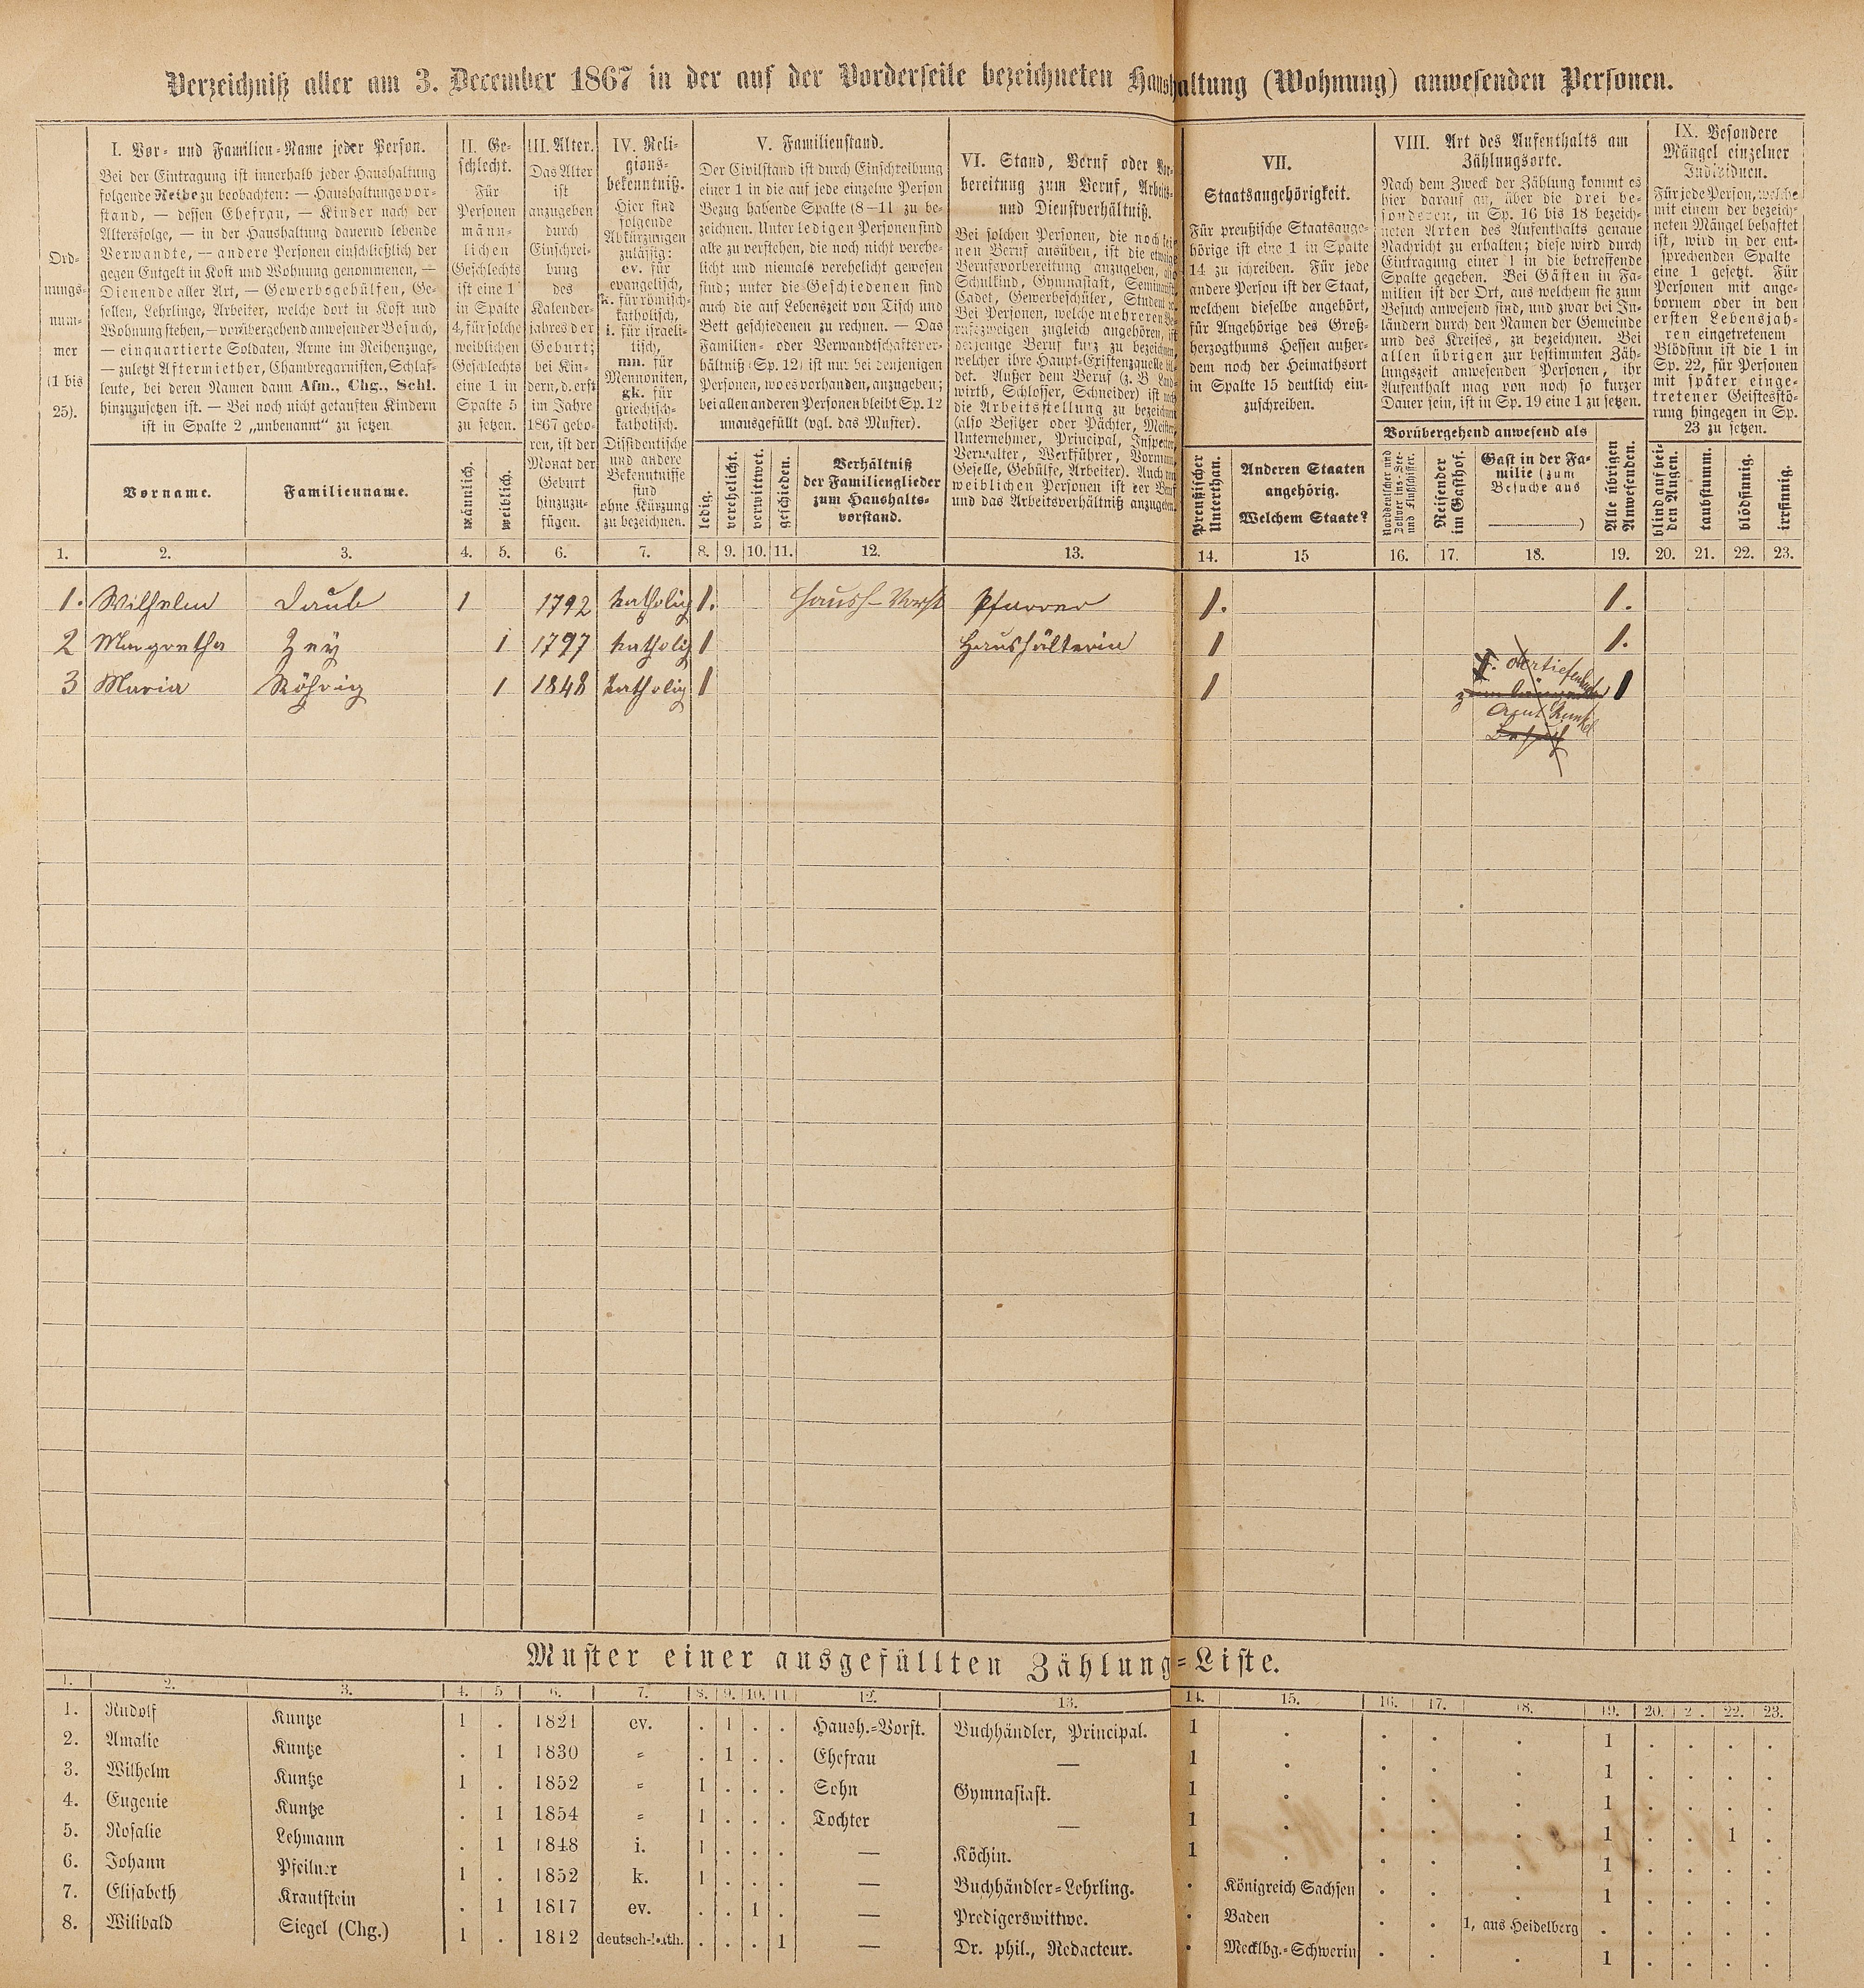 Verzeichniß aller am 3. December 1867 in der auf der Vorderseite bezeichneten Haushaltung (Wohnung) anwesenden Personen.
Ord-
nungs-
num-
mer
(1 bis
25).
I. Vor- und Familien-Name jeder Person.
Bei der Eintragung ist innerhalb jeder Haushaltung
folgende Reihe zu beobachten: — Haushaltungsvor-
stand, — dessen Ehefrau, — Kinder nach der
Altersfolge, — in der Haushaltung dauernd lebende
Verwandte, — andere Personen einschließlich der
gegen Entgelt in Kost und Wohnung genommenen, —
Dienende aller Art, — Gewerbsgehülfen, Ge-
sellen, Lehrlinge, Arbeiter, welche dort in Kost und
Wohnung stehen, — vorübergehend anwesender Besuch,
— einquartierte Soldaten, Arme im Reihenzuge,
— zuletzt Aftermiether, Chambregarnisten, Schlaf-
leute, bei deren Namen dann Afm., Chg., Schl.
hinzuzusetzen ist. — Bei noch nicht getauften Kindern
ist in Spalte 2 „unbenannt“ zu setzen
Vorname.
Familienname.
II. Ge-
schlecht.
Für
Personen
männ-
lichen
Geschlechts
ist eine 1
in Spalte
4, für solche
weiblichen
Geschlechts
eine 1 in
Spalte 5
zu setzen.
männlich.
weiblich.
III. Alter.
Das Alter
ist
anzugeben
durch
Einschrei-
bung
des
Kalender-
jahres der
Geburt;
bei Kin-
dern, d. erst
im Jahre
1867 gebo-
ren, ist der
Monat der
Geburt
hinzuzu-
fügen.
IV. Reli-
gions-
bekenntniß.
Hier sind
folgende
Abkürzungen
zulässig:
ev. für
evangelisch,
k. für römisch-
katholisch,
i. für israeli-
tisch,
mn. für
Mennoniten,
gk. für
griechisch-
katholisch.
Dissidentische
und andere
Bekenntnisse
sind
ohne Kürzung
zu bezeichnen.
V. Familienstand.
Der Civilstand ist durch Einschreibung
einer 1 in die auf jede einzelne Person
Bezug habende Spalte (8—11 zu be-
zeichnen. Unter ledigen Personen sind
alle zu verstehen, die noch nicht verehe-
licht und niemals verehelicht gewesen
sind; unter die Geschiedenen sind
auch die auf Lebenszeit von Tisch und
Bett geschiedenen zu rechnen. — Das
Familien- oder Verwandtschaftsver-
hältniß (Sp. 12) ist nur bei denjenigen
Personen, wo es vorhanden, anzugeben;
bei allen anderen Personen bleibt Sp. 12
unausgefüllt (vgl. das Muster).
ledig.
verehelicht.
verwittwet.
geschieden.
Verhältniß
der Familienglieder
zum Haushalts-
vorstand.
VI. Stand, Beruf oder Vor-
bereitung zum Beruf, Arbeits-
und Dienstverhältniß.
Bei solchen Personen, die noch kei-
nen Beruf ausüben, ist die etwaige
Berufsvorbereitung anzugeben, also
Schulkind, Gymnasiast, Seminarist,
Cadet, Gewerbeschüler, Student
Bei Personen, welche mehreren Be-
rufszweigen zugleich angehören, ist
derjenige Beruf kurz zu bezeichnen,
welcher ihre Haupt-Existenzquelle bil-
det. Außer dem Beruf (z. B. Land-
wirth, Schlosser, Schneider) ist noch
die Arbeitsstellung zu bezeichnen
(also Besitzer oder Pächter, Meister,
Unternehmer, Principal, Inspector,
Verwalter, Werkführer, Vormann,
Geselle, Gehülfe, Arbeiter). Auch von
weiblichen Personen ist der Beruf
und das Arbeitsverhältniß anzugeben.
VII.
Staatsangehörigkeit.
Für preußische Staatsange-
hörige ist eine 1 in Spalte
14 zu schreiben. Für jede
andere Person ist der Staat,
welchem dieselbe angehört,
für Angehörige des Groß-
herzogthums Hessen außer-
dem noch der Heimathsort
in Spalte 15 deutlich ein-
zuschreiben.
Preußischer
Unterthan.
Anderen Staaten
angehörig.
Welchem Staate?
VIII. Art des Aufenthalts am
Zählungsorte.
Nach dem Zweck der Zählung kommt es
hier darauf an, über die drei be-
sonderen, in Sp. 16 bis 18 bezeich-
neten Arten des Aufenthalts genaue
Nachricht zu erhalten; diese wird durch
Eintragung einer 1 in die betreffende
Spalte gegeben. Bei Gästen in Fa-
milien ist der Ort, aus welchem sie zum
Besuch anwesend sind, und zwar bei In-
ländern durch den Namen der Gemeinde
und des Kreises, zu bezeichnen. Bei
allen übrigen zur bestimmten Zäh-
lungszeit anwesenden Personen, ihr
Aufenthalt mag von noch so kurzer
Dauer sein, ist in Sp. 19 eine 1 zu setzen.
Vorübergehend anwesend als
Norddeutscher und
Zollver ins-See-
und Flußschiffer.
Reisender
im Gasthof.
Gast in der Fa-
milie (zum
Besuche aus
)
Alle übrigen
Anwesenden.
IX. Besondere
Mängel einzelner
Individuen.
Für jede Person, welche
mit einem der bezeich-
neten Mängel behaftet
ist, wird in der ent-
sprechenden Spalte
eine 1 gesetzt. Für
Personen mit ange-
bornem oder in den
ersten Lebensjah-
ren eingetretenem
Blödsinn ist die 1 in
Sp. 22, für Personen
mit später einge-
tretener Geistesstö-
rung hingegen in Sp.
23 zu setzen.
blind auf bei-
den Augen.
taubstumm.
blödsinnig.
irrsinnig.
1. 2. 3. 4. 5. 6. 7. 8. 9. 10. 11. 12. 13. 14. 15 16. 17. 18. 19. 20. 21. 22. 23.
1. Wilhelm Daub 1 1792 katholig 1. Haush-Vorst Pfarrer 1. 1.
2 Margretha Zey 1 1797 katholig 1 Haushälterin 1 1.
3 Maria Röhrig 1 1848 katholig 1 1 1
Muster einer ausgefüllten Zählung-Liste.
1. 2. 3. 4. 5 6. 7. 8. 9. 10. 11. 12. 13. 14. 15. 16. 17. 18. 19. 20. 2 . 22. 23.
1. Rudolf Kuntze 1 . 1821 ev. . 1 . . Haush.-Vorst. Buchhändler, Principal. 1 . . . . 1 . . . .
2. Amalie Kuntze . 1 1830 = . 1 . . Ehefrau — 1 . . . . 1 . . . .
3. Wilhelm Kuntze 1 . 1852 = 1 . . . Sohn Gymnasiast. 1 . . . . 1 . . . .
4. Eugenie Kuntze . 1 1854 = 1 . . . Tochter — 1 . . . . 1 . . 1 .
5. Rosalie Lehmann . 1 1848 i. 1 . . . — Köchin. 1 . . . . 1 . . . .
6. Johann Pfeilner 1 . 1852 k. 1 . . . — Buchhändler-Lehrling. . Königreich Sachsen . . . 1 . . . .
7. Elisabeth Krautstein . 1 1817 ev. . . 1 . — Predigerswittwe. . Baden . . 1, aus Heidelberg . . . . .
8. Wilibald Siegel (Chg.) 1 . 1812 deutsch-kath. . . . 1 — Dr. phil., Redacteur. . Mecklbg.-Schwerin . . . 1 . . . .